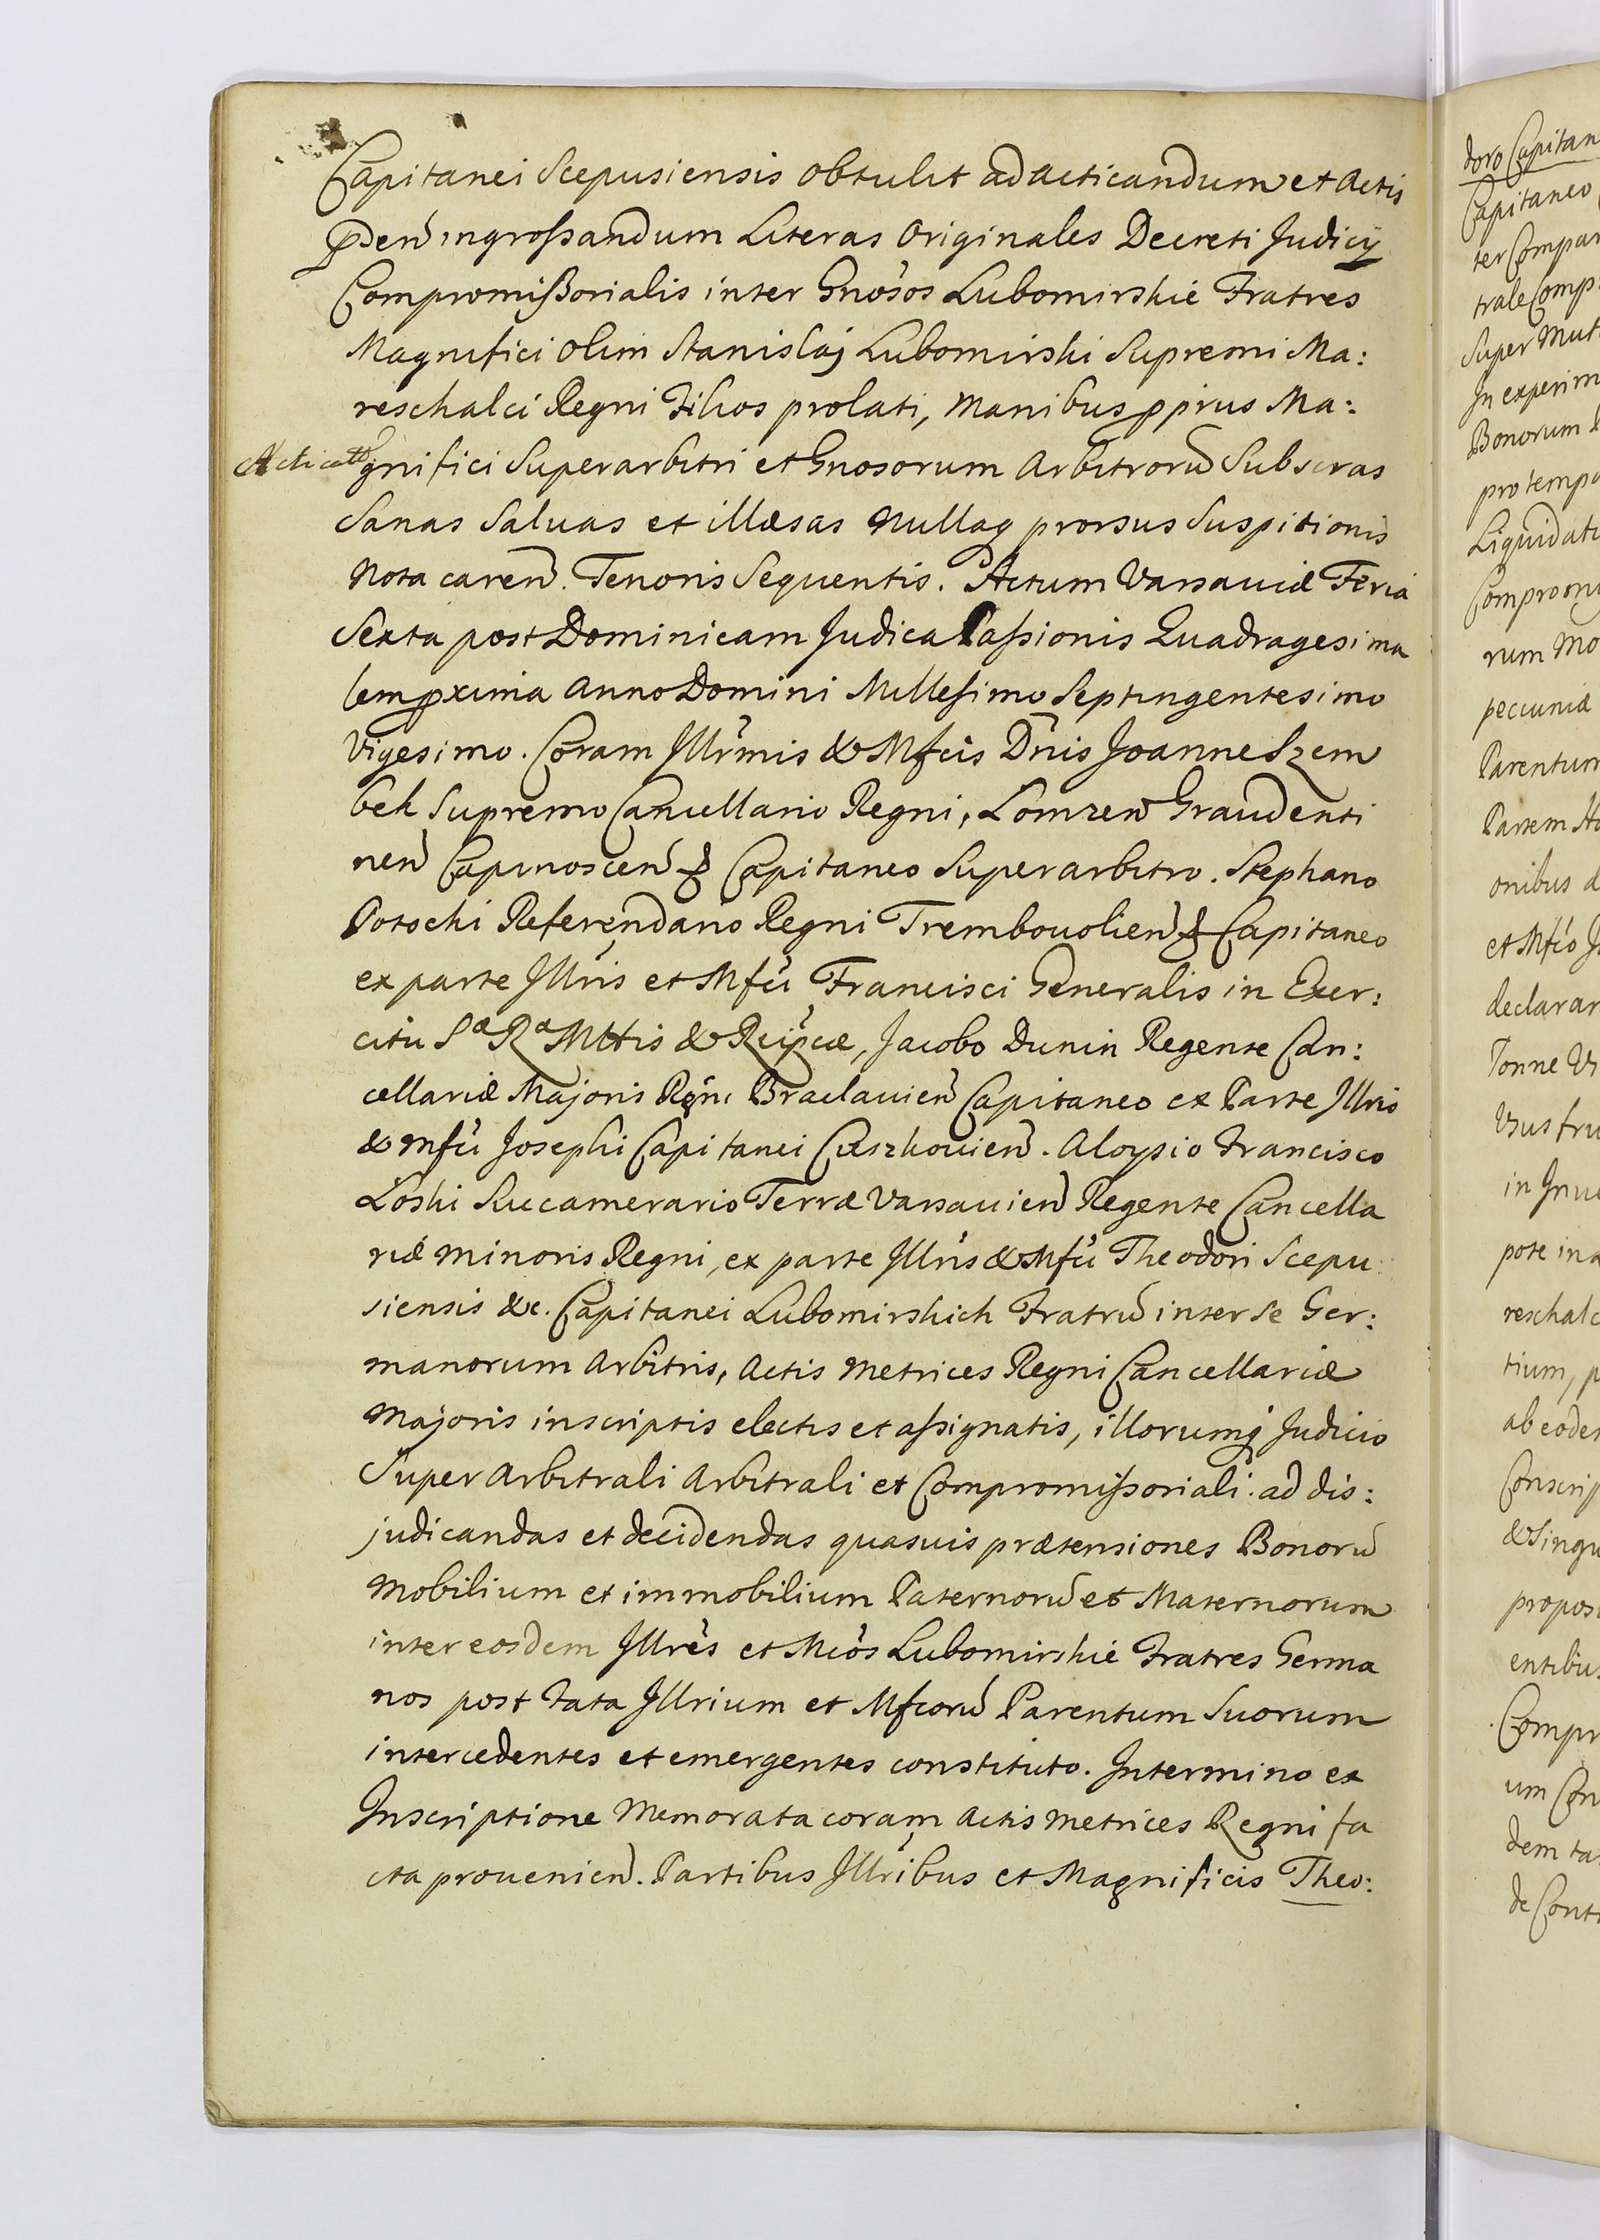 Capitanei Scepusiensis obtulit ad acticandum et Actis
pden ingrossandum Literas Originales Decreti Judicij
Compromissorialis inter Gnosos Lubomirskie Fratres
Magnifici olim Stanislaj Lubomirski Supremi Ma:
reschalci Regni Filios prolati, Manibus pprius Ma:
gnifici Superarbitri et Gnosorum Arbitroru Subscras
Sanas Saluas et illæsas Nullaq prorsus Suspitionis
Nota caren. Tenoris Sequentis. Actum Varsauiæ Feria
Sexta post Dominicam Judica Passionis Quadragesima
lem pxima Anno Domini Millesimo Septingentesimo
Vigesimo. Coram Illrmis & Mfcis Dnis Joanne Szem
bek Supremo Cancellario Regni, Lomzen Graudenti
nen Capinoscen & Capitaneo Superarbitro. Stephano
Potocki Referendario Regni Trembouolien & Capitaneo
ex parte Illris et Mfci Francisci Generalis in Exer:
citu Sæ Ræ Mttis & Reipcæ, Jacobo Dunin Regente Can:
cellariæ Majoris Rgni Braclauien Capitaneo ex Parte Illris
& Mfci Josephi Capitanei Czerkouien. Aloysio Francisco
Loski Succamerario Terræ Varsauien Regente Cancella
riæ Minoris Regni, ex parte Illris & Mfci Theodori Scepu
siensis &c. Capitanei Lubomirskich Fratru inter se Ger:
manorum Arbitris, Actis Metrices Regni Cancellariæ
Majoris inscriptis electis et assignatis, illorumq Judicio
Super Arbitrali Arbitrali et Compromissoriali: ad dis:
judicandas et decidendas quasuis prætensiones Bonoru
Mobilium et immobilium Paternoru et Maternorum
inter eosdem Illres et Mcos Lubomirskie Fratres Germa
nos post Fata Illrium et Mfcoru Parentum Suorum
intercedentes et emergentes constituto. In termino ex
Inscriptione Memorata coram Actis Metrices Regni fa
cta prouenien. Partibus Illribus et Magnificis Theo:
doro Capitan
Capitaneo
ter Compar
trale Comp
Super Mut
In experim
Bonorum
pro tempo
Liquidati
Compromi
rum Mo
pecuniæ
Parentum
Partem
onibus
et Mfco
declarar
Tonne
Vsus fru
pote in
reschalc
tium,
ab eodem
Conscrip
& Singu
propos
entibus
Compr
um Con
dem ta
de Cont